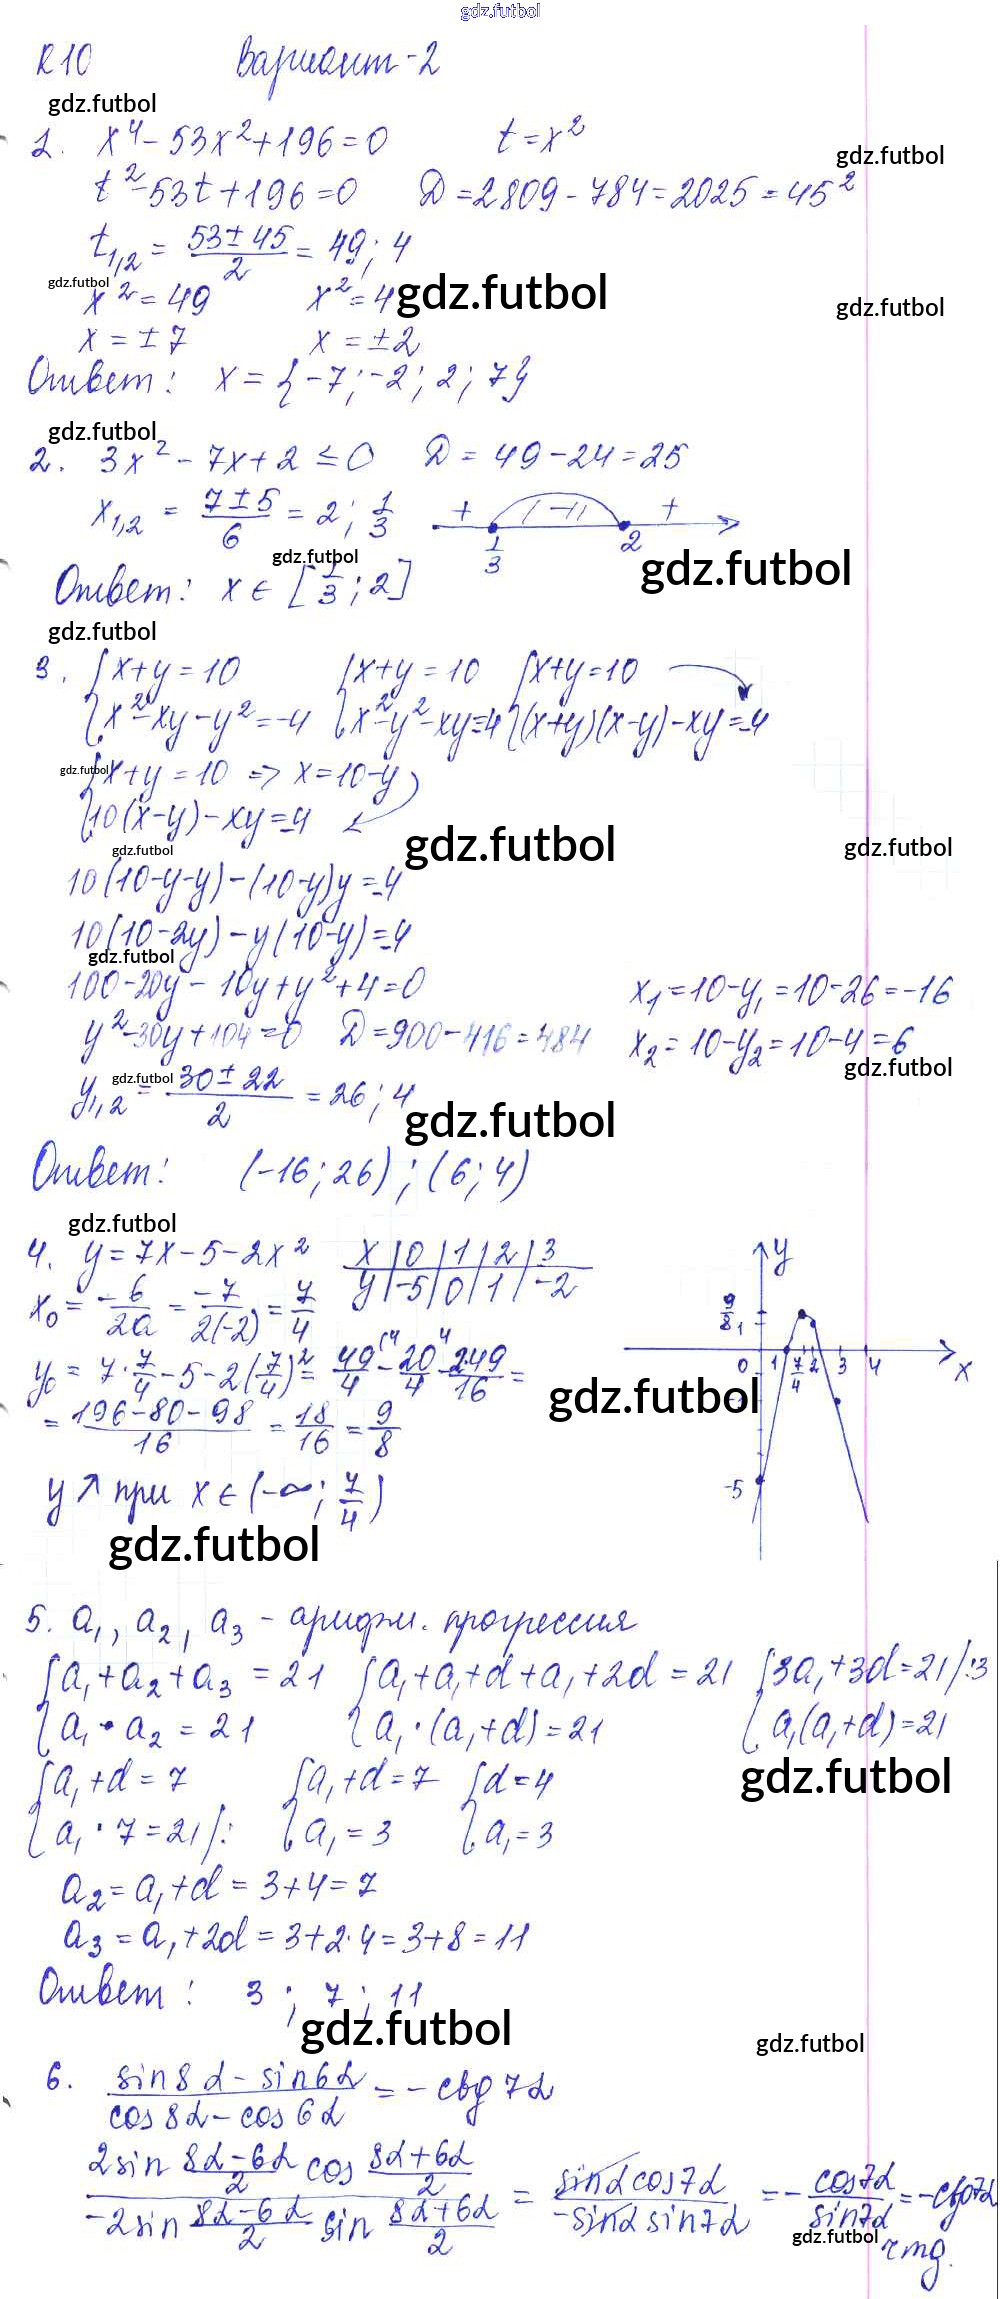 gdz.futbol
К10 Вариант-2
gdz.futbol
1. x⁴ - 53x² + 196 = 0 t = x²
gdz.futbol
t² - 53t + 196 = 0 D = 2809 - 784 = 2025 = 45²
t₁,₂ = (53 ± 45)/2 = 49; 4
gdz.futbol
x² = 49 x² = 4 gdz.futbol gdz.futbol
x = ± 7 x = ± 2
Ответ: x = {-7; -2; 2; 7}
gdz.futbol
2. 3x² - 7x + 2 ≤ 0 D = 49 - 24 = 25
x₁,₂ = (7 ± 5)/6 = 2; 1/3 + - + 1/3 2
gdz.futbol gdz.futbol
Ответ: x ∈ [1/3; 2]
gdz.futbol
3. {x + y = 10 {x + y = 10 {x + y = 10
{x² - xy - y² = -4 {x² - y² - xy = -4 {(x+y)(x-y) - xy = -4
gdz.futbol {x + y = 10 => x = 10 - y
{10(x-y) - xy = -4
gdz.futbol gdz.futbol gdz.futbol
10(10-y-y) - (10-y)y = -4
10(10-2y) - y(10-y) = -4
gdz.futbol
100 - 20y - 10y + y² + 4 = 0 x₁ = 10 - y₁ = 10 - 26 = -16
y² - 30y + 104 = 0 D = 900 - 416 = 484 x₂ = 10 - y₂ = 10 - 4 = 6
gdz.futbol gdz.futbol
y₁,₂ = (30 ± 22)/2 = 26; 4 gdz.futbol
Ответ: (-16; 26); (6; 4)
gdz.futbol
4. y = 7x - 5 - 2x² x | 0 | 1 | 2 | 3
y | -5 | 0 | 1 | -2
x₀ = -б/2a = -7/2(-2) = 7/4
y₀ = 7·7/4 - 5 - 2(7/4)² = 49/4 (4 - 20/4 4 - 2·49/16 =
gdz.futbol
= (196 - 80 - 98)/16 = 18/16 = 9/8
y 9/8 1 0 1 7/4 2 3 4 x -5
y ↗ при x ∈ (-∞; 7/4)
gdz.futbol
5. a₁, a₂, a₃ - арифм. прогрессия
{a₁ + a₂ + a₃ = 21 {a₁ + a₁ + d + a₁ + 2d = 21 {3a₁ + 3d = 21 /:3
{a₁ · a₂ = 21 {a₁ · (a₁ + d) = 21 {a₁(a₁ + d) = 21
gdz.futbol
{a₁ + d = 7 {a₁ + d = 7 {d = 4
{a₁ · 7 = 21 /: {a₁ = 3 {a₁ = 3
a₂ = a₁ + d = 3 + 4 = 7
a₃ = a₁ + 2d = 3 + 2·4 = 3 + 8 = 11
Ответ: 3; 7; 11
gdz.futbol gdz.futbol
6. (sin8α - sin6α)/(cos8α - cos6α) = -ctg7α
(2sin (8α-6α)/2 cos (8α+6α)/2)/(-2sin (8α-6α)/2 sin (8α+6α)/2) = (sinα cos7α)/(-sinα sin7α) = -cos7α/sin7α = -ctg7α
gdz.futbol
чтд.